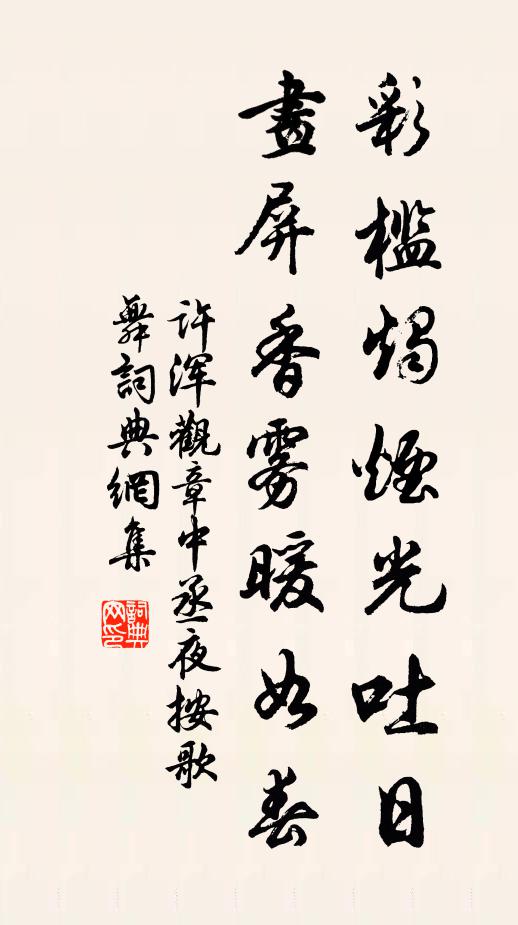 彩槛烛煙光吐日
畫屏香雾暖如春
许浑觀章中丞夜按歌
舞詞典網集
詞典网印